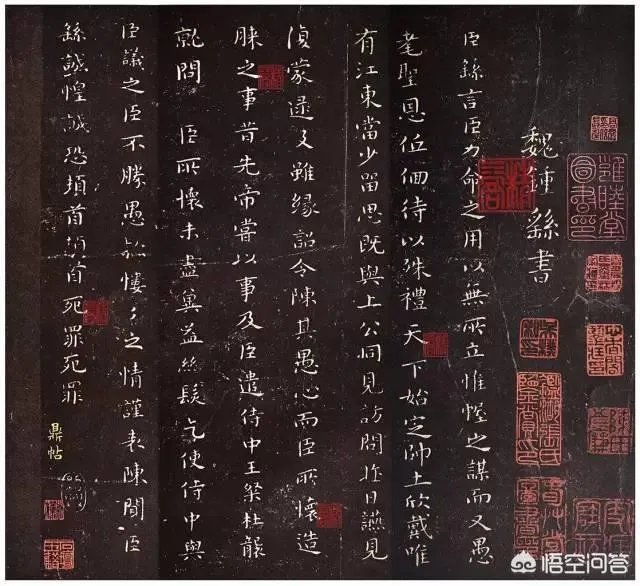 魏鍾繇書
臣繇言臣力命之用以無所立惟幄之謀而又愚
耄聖恩低佪待以殊禮天下始定帥土欣戴唯
有江東當少留思既與上公同見訪問昨日讌見
復蒙逮及雖緣詔令陳其愚心而臣所懷造
膝之事昔先帝嘗以事及臣遣侍中王粲杜襲
就問 臣所懷未盡冀益絲髮乞使侍中與
臣議之臣不勝愚款慺々之情謹表陳聞臣
繇誠惶誠恐頓首頓首死罪死罪
鼎帖
悟空问答